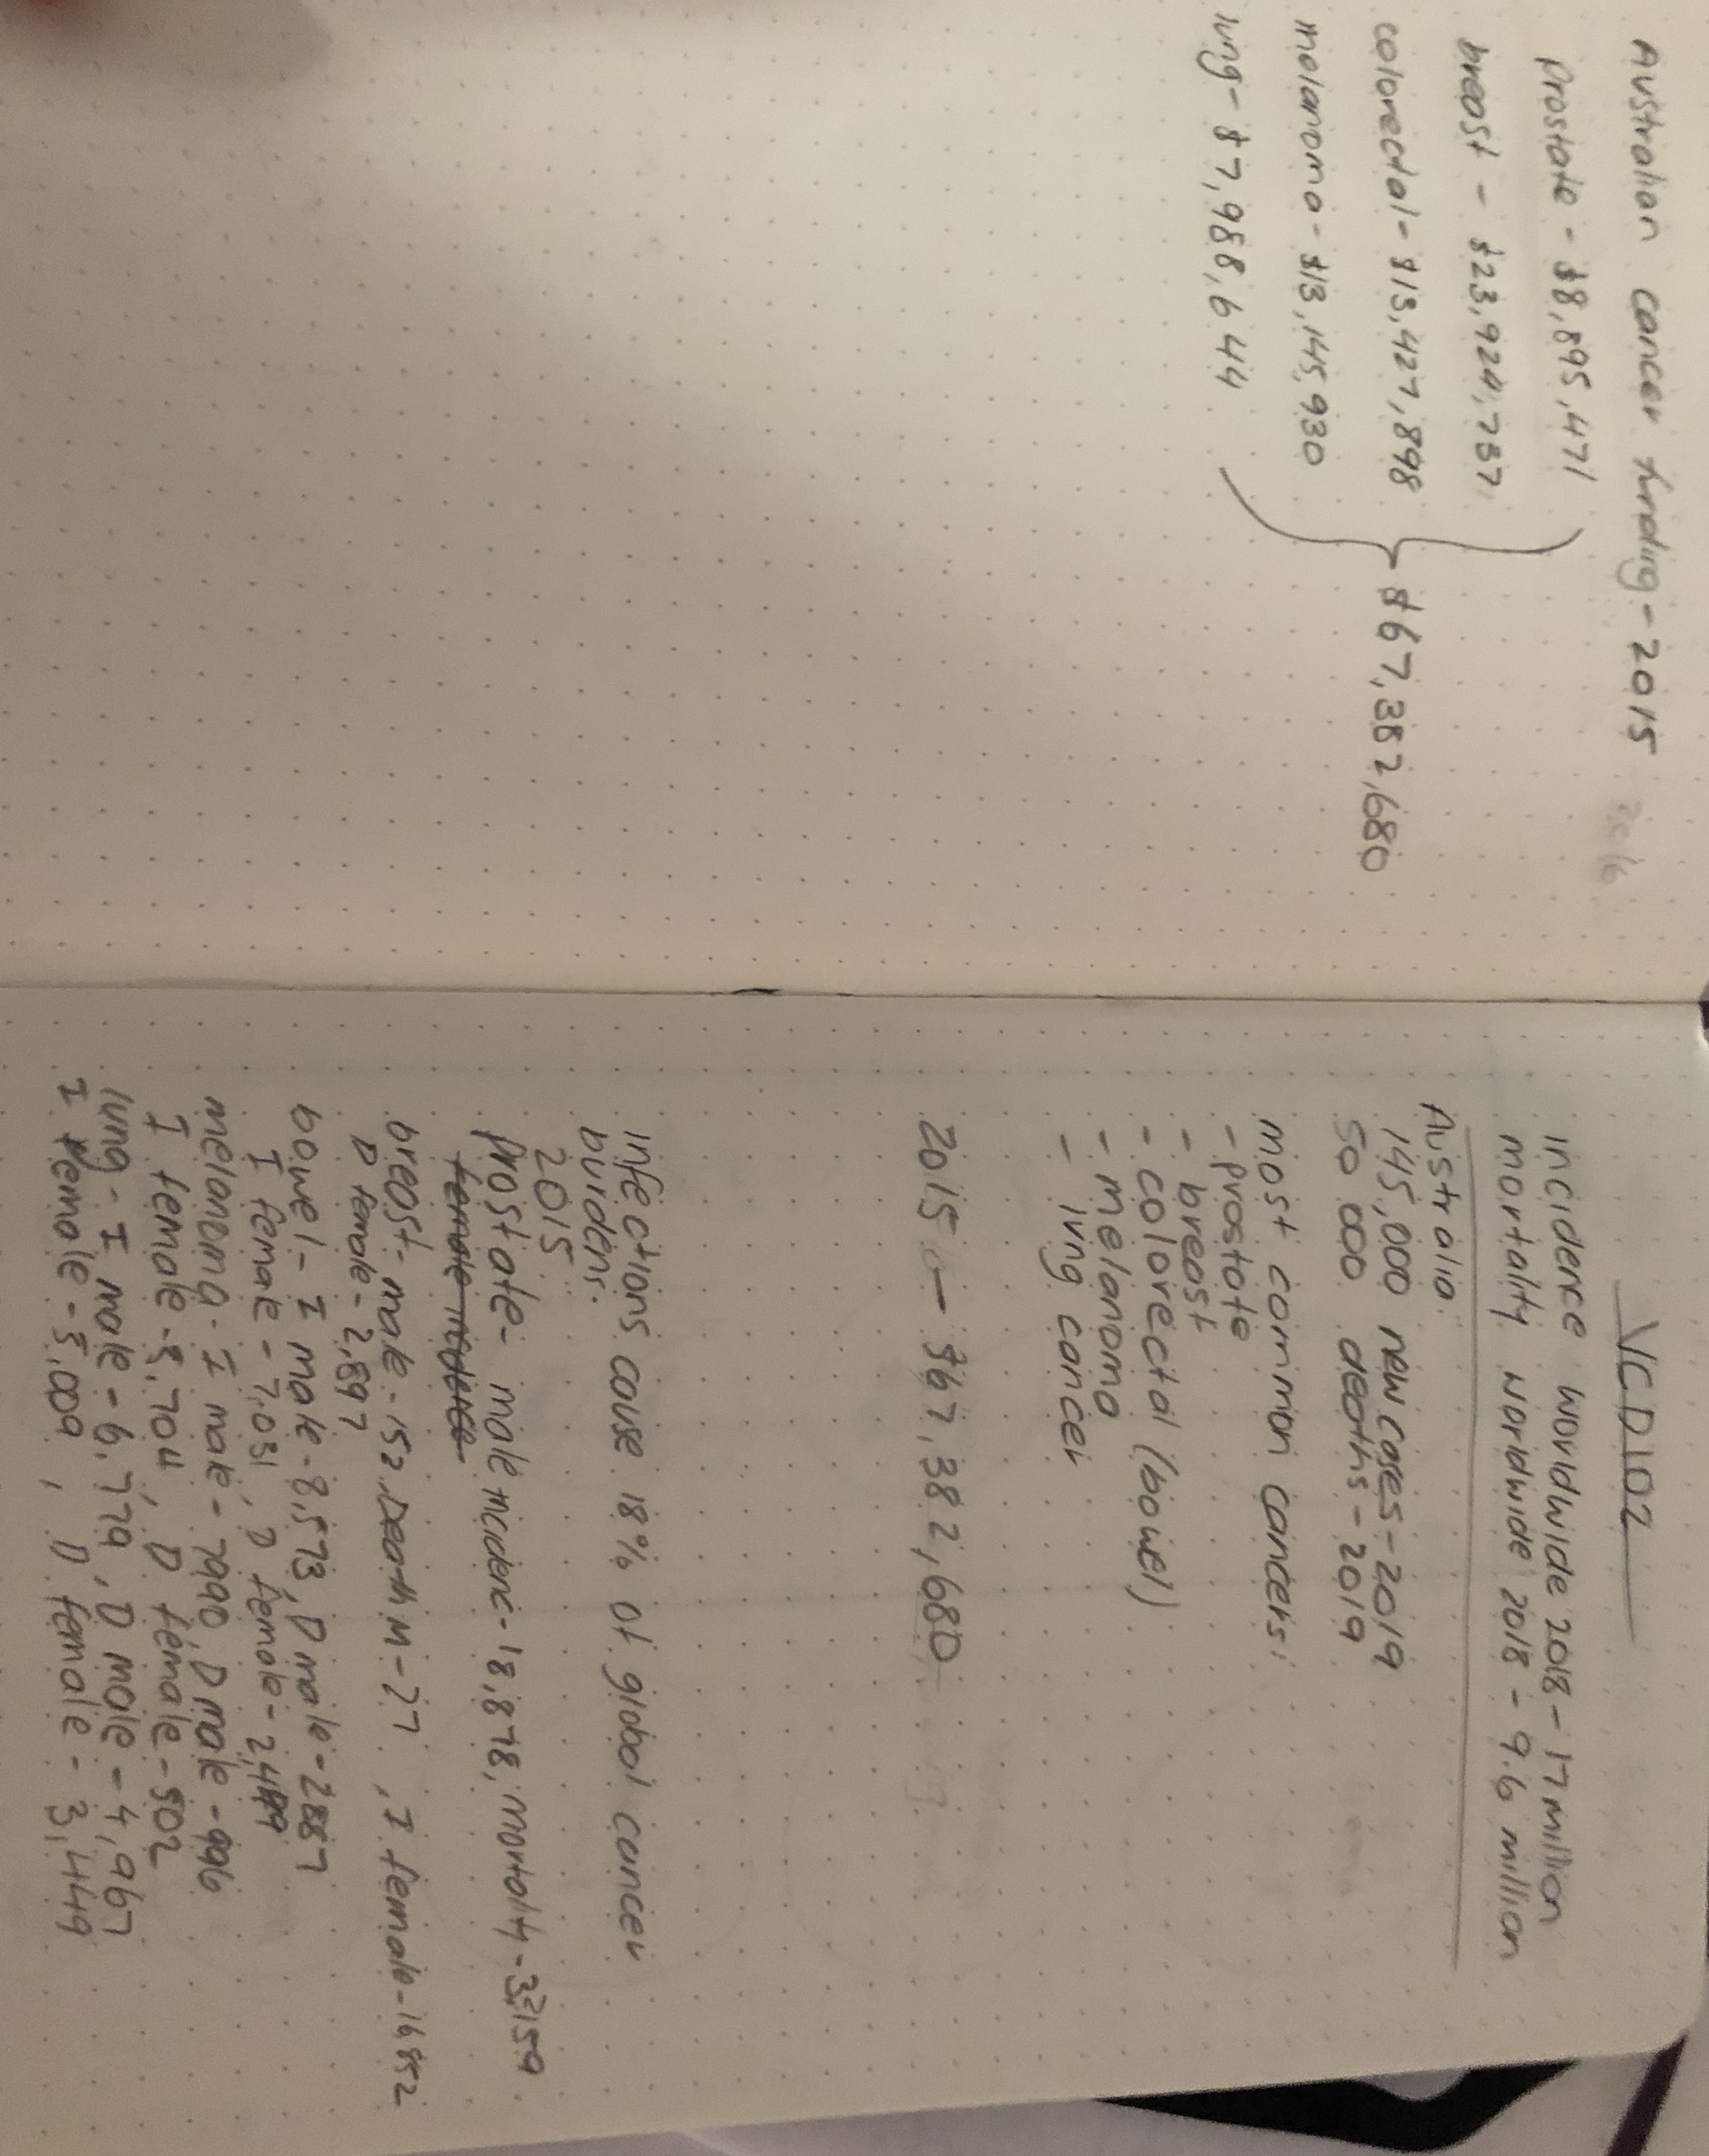 Australian cancer funding - 2015
2016
prostate - $8,895,471
breast - $23,924,737
colorectal - $13,427,898
melanoma - $13,145,930
lung - $7,988,644
$67,382,680
VCD102
incidence worldwide 2018 - 17 million
mortality worldwide 2018 - 9.6 million
Australia
145,000 new cases - 2019
50 000 deaths - 2019
most common cancers:
- prostate
- breast
- colorectal (bowel)
- melanoma
- lung cancer
2015 - $67,382,680
infections cause 18% of global cancer
burdens.
2015
prostate - male incidenc - 18,878, mortality - 3,159
female
breast - male - 152, Death M - 27, I female - 16852
D female - 2,897
bowel - I male - 8,573, D male - 2887
I female - 7,031, D female - 2,449
melanoma - I male - 7990, D male - 996
I female - 5,704, D female - 502
lung - I male - 6,779, D male - 4,967
I female - 5,009, D female - 3,449